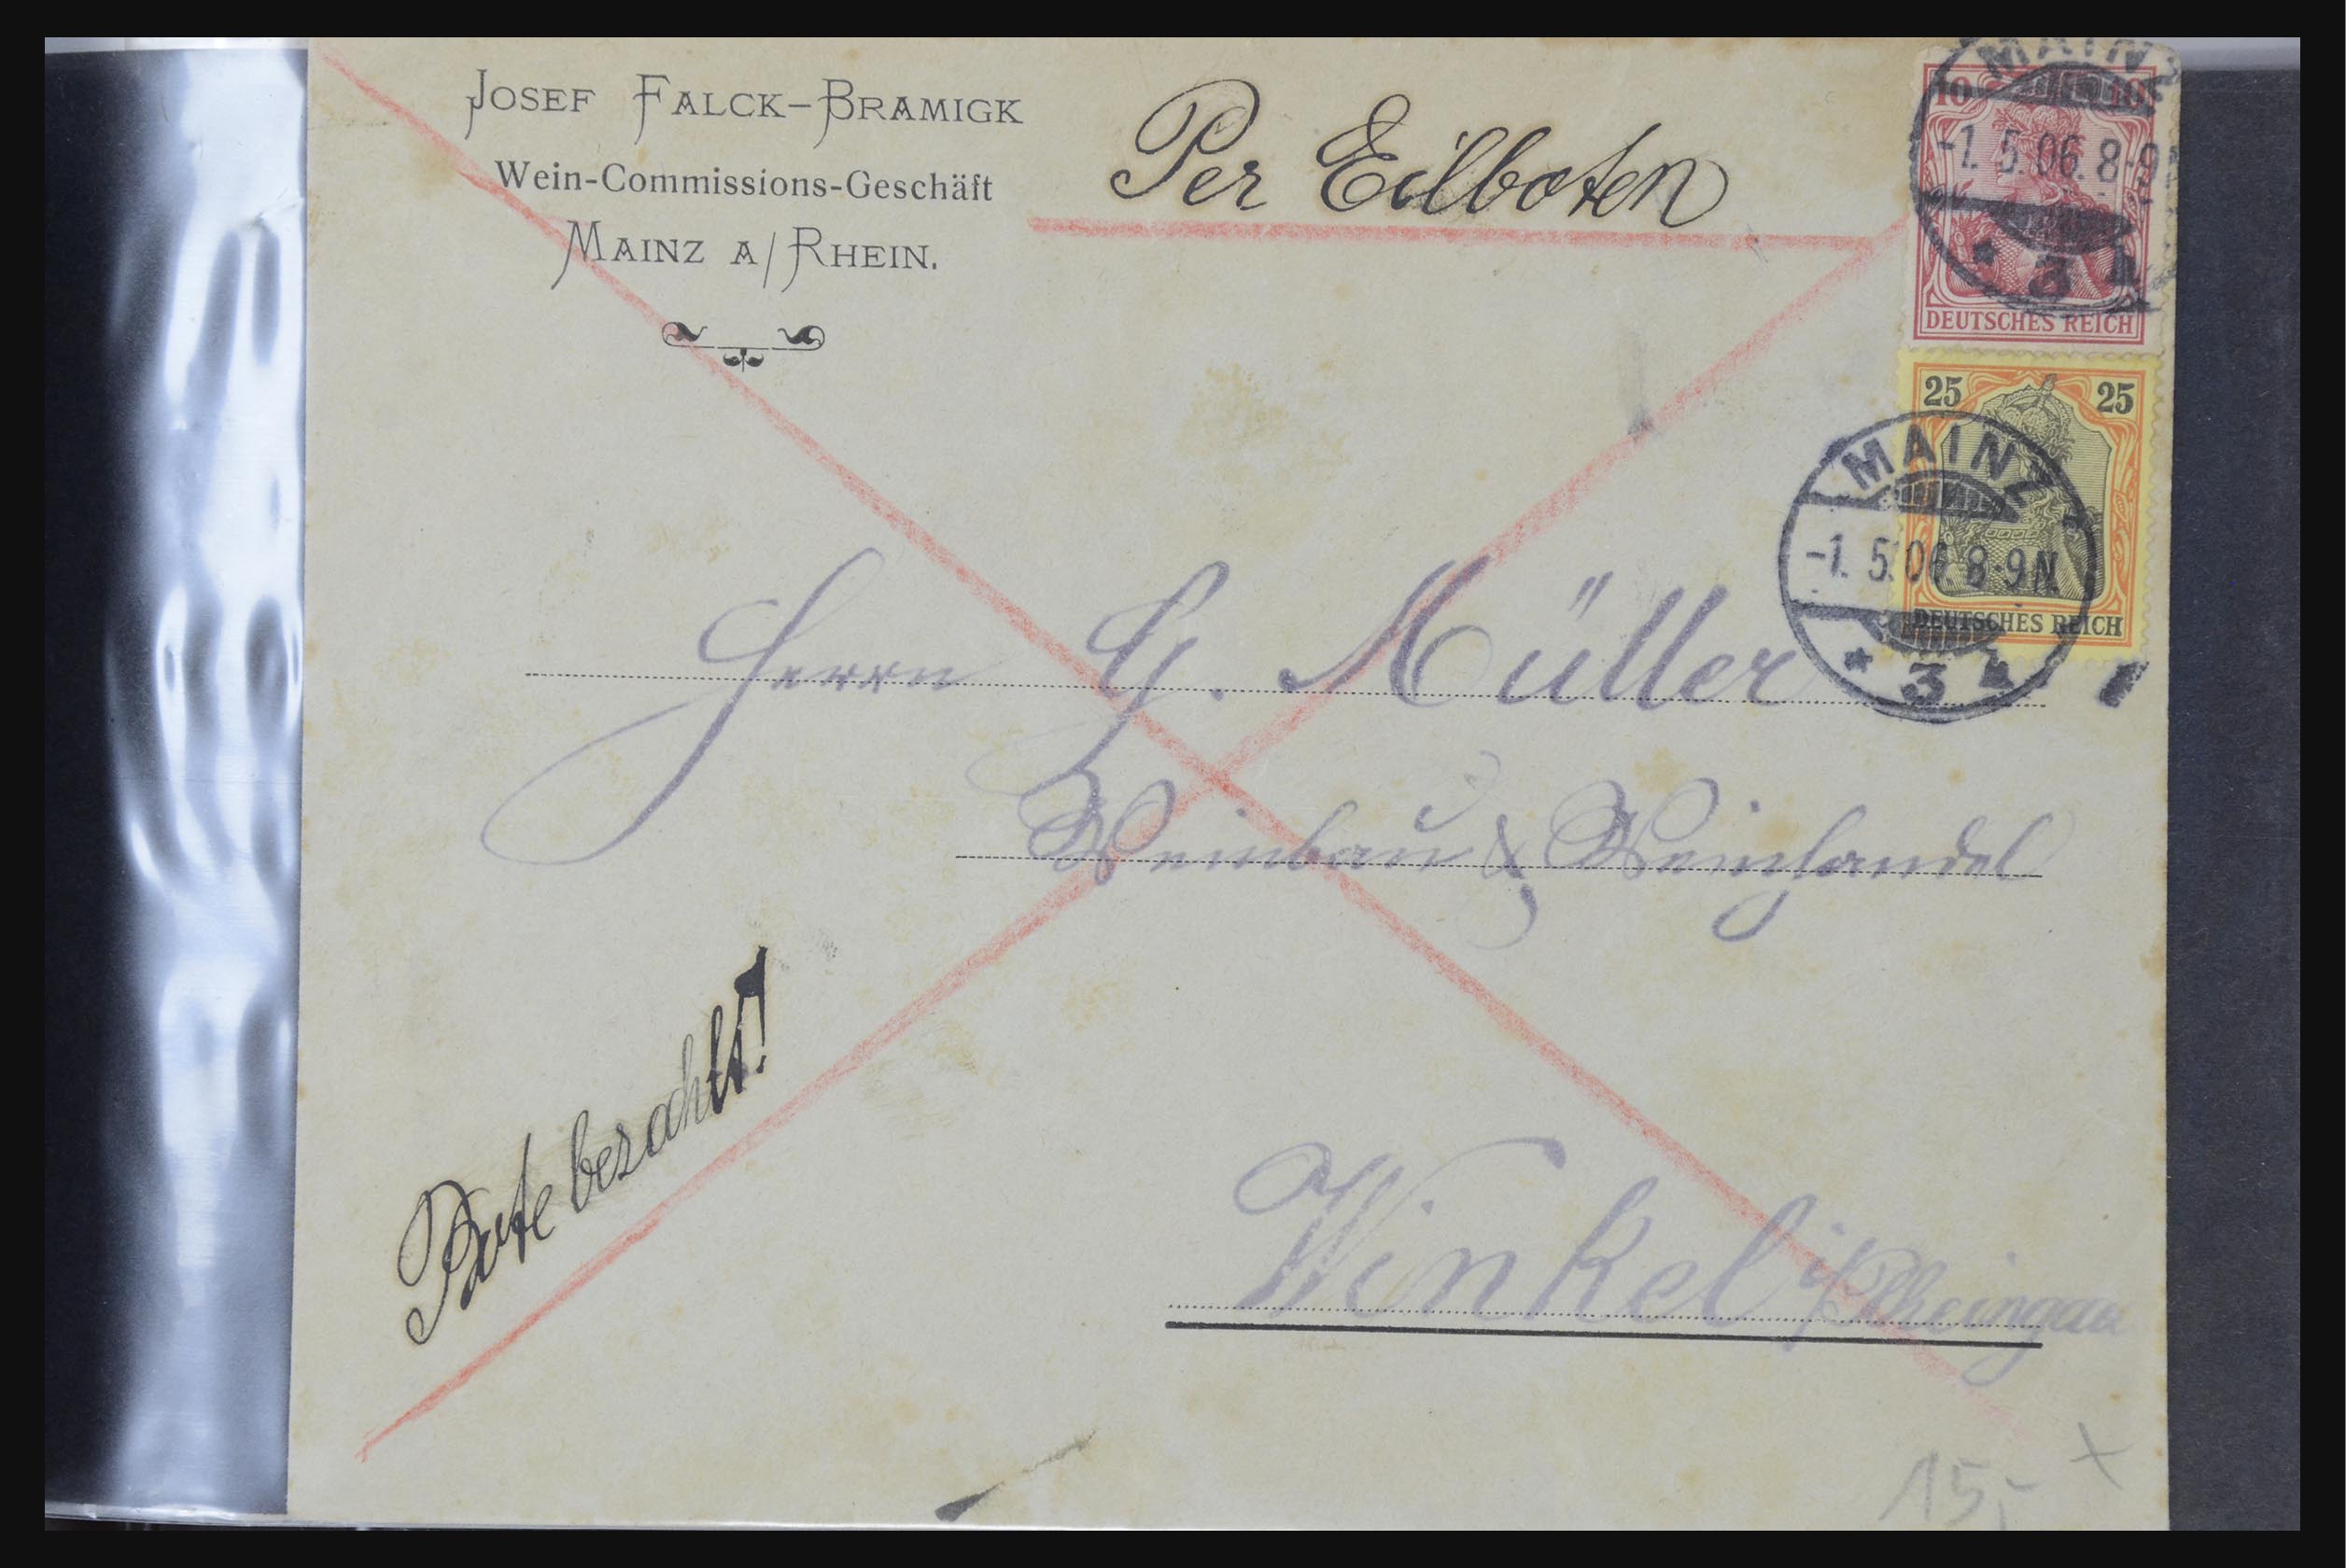 JOSEF FALCK-BRAMIGK
Wein-Commissions-Geschäft
MAINZ A/RHEIN.
Per Eilboten
MAINZ
10 10
-1. 5. 06. 8-9
* 3 h
DEUTSCHES REICH
25 25
MAINZ
-1. 5. 06 8-9 N.
* 3 h
DEUTSCHES REICH
Herrn G. Müller
Weinbau & Weinhandel
Bote bezahlt!
Winkel i/Rheingau
15,- x